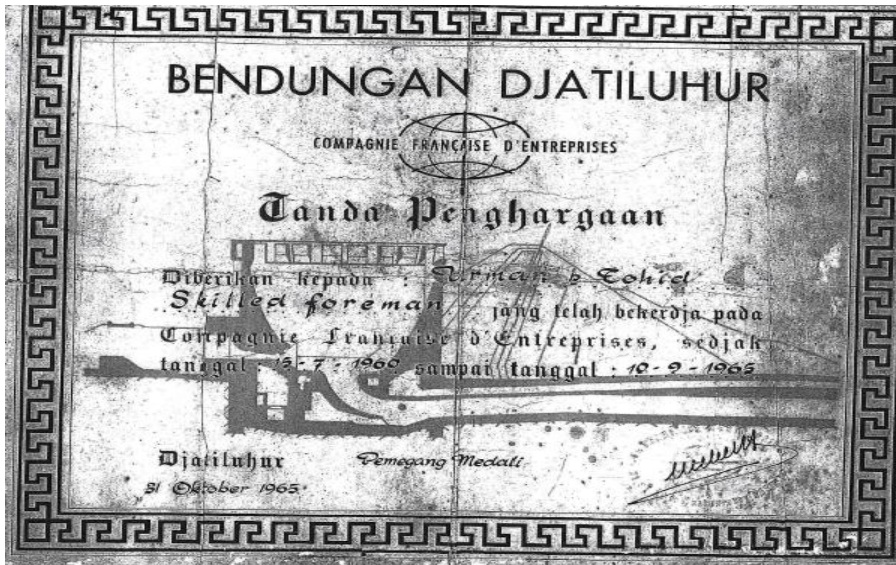 BENDUNGAN DJATILUHUR
COMPAGNIE FRANÇAISE D'ENTREPRISES
Tanda Penghargaan
Diberikan kepada : Urman b Tohid
Skilled foreman jang telah bekerdja pada
Compagnie Française d'Entreprises, sedjak
tanggal : 13-7-1960 sampai tanggal : 10-9-1965
Djatiluhur Pemegang Medali
31 Oktober 1965.